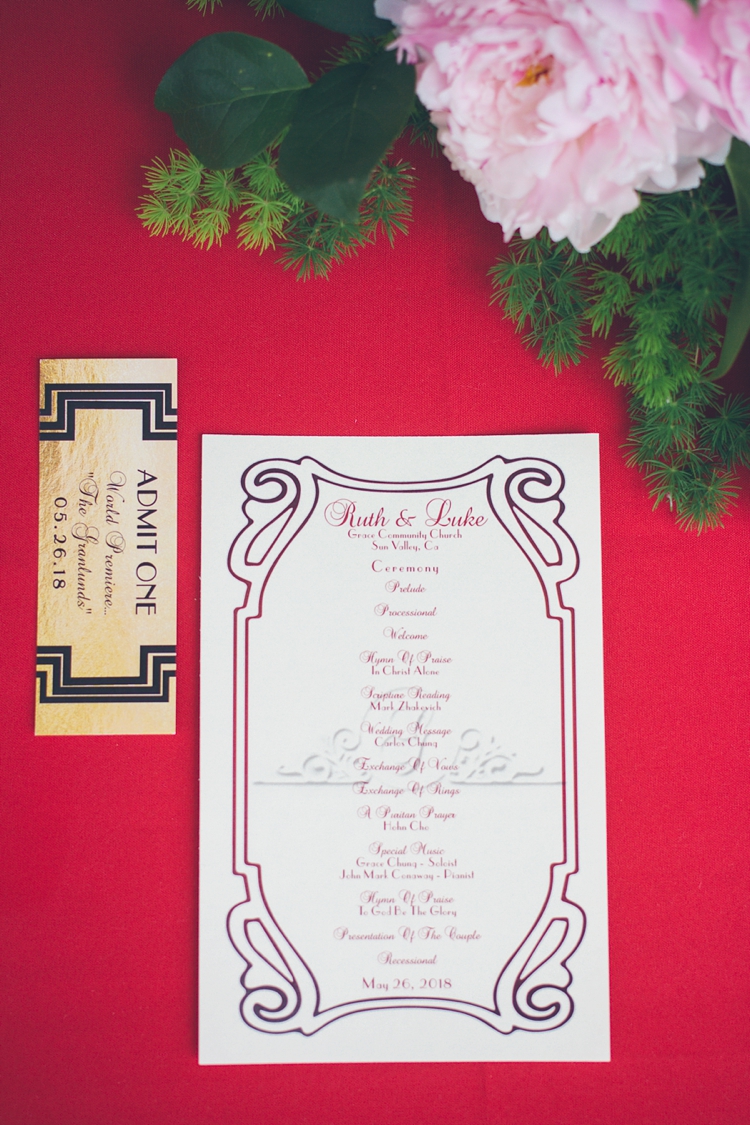 ADMIT ONE
World Premiere...
"The Granlunds"
05.26.18
Ruth & Luke
Grace Community Church
Sun Valley, Ca
Ceremony
Prelude
Processional
Welcome
Hymn Of Praise
In Christ Alone
Scripture Reading
Mark Zhakevich
Wedding Message
Carlos Chung
Exchange Of Vows
Exchange Of Rings
A Puritan Prayer
Hohn Cho
Special Music
Grace Chung - Soloist
John Mark Conaway - Pianist
Hymn Of Praise
To God Be The Glory
Presentation Of The Couple
Recessional
May 26, 2018